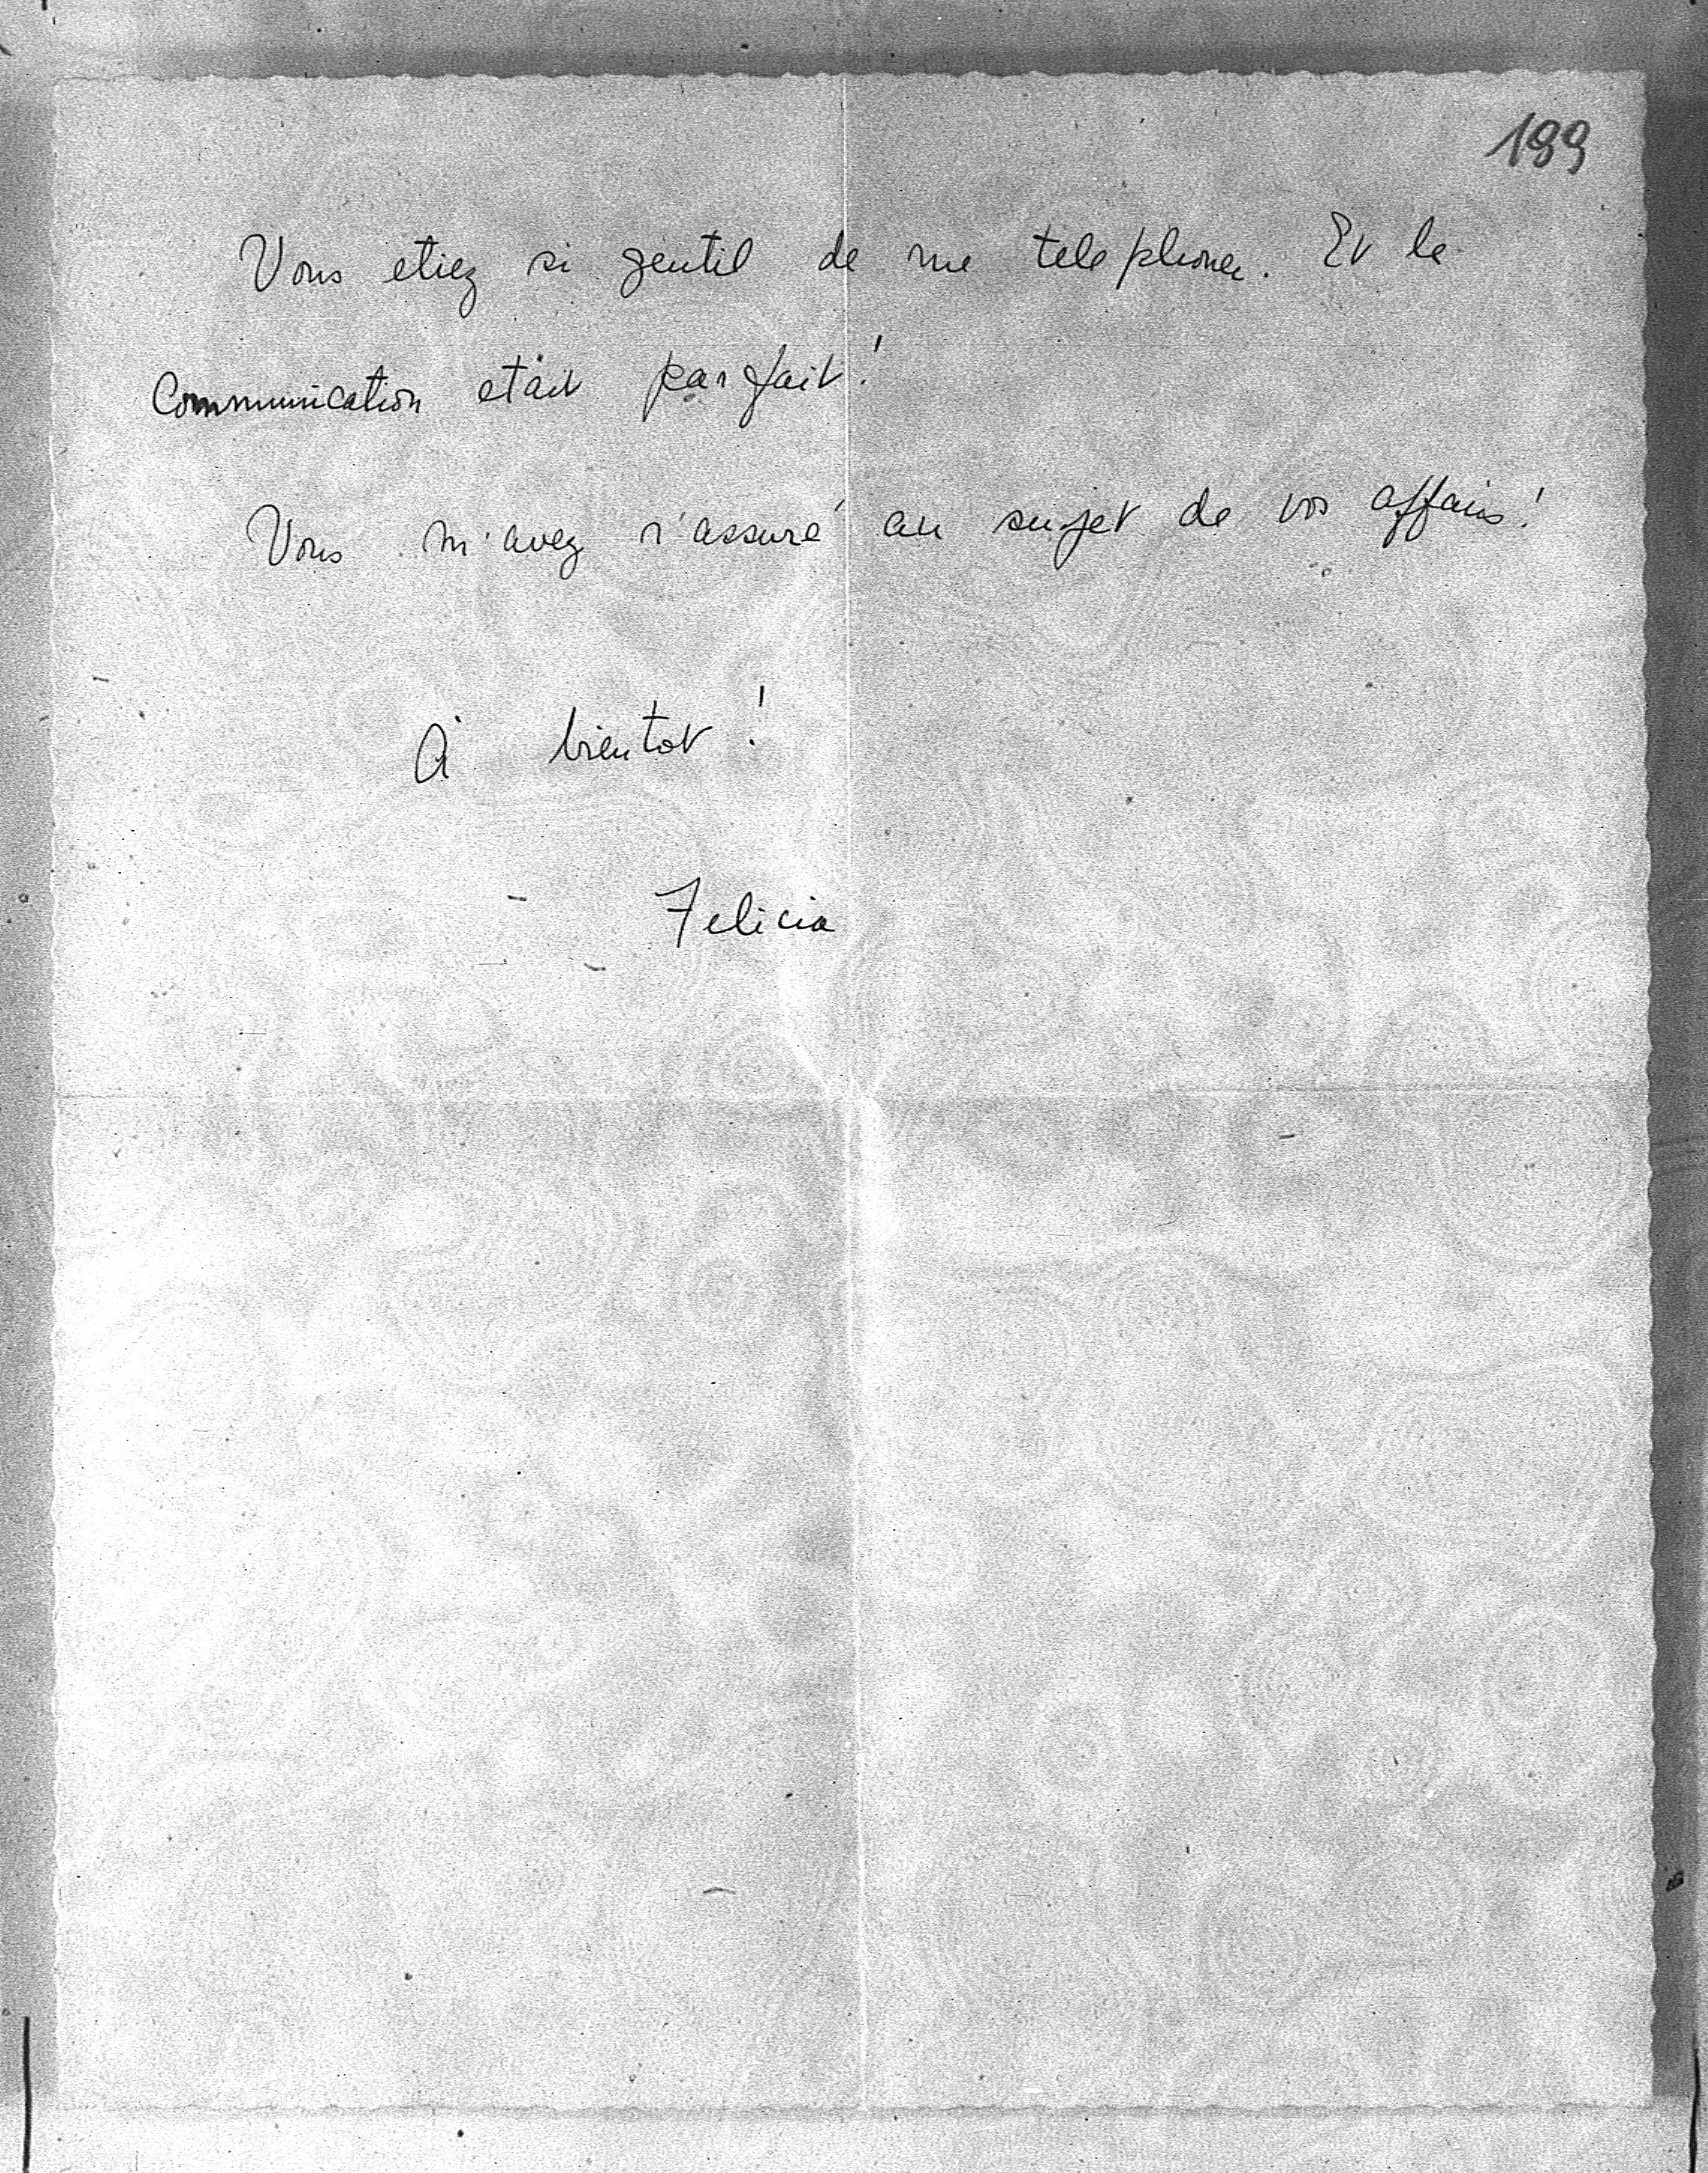 189
Vous etiez si gentil de me telephoner. Et le
Communication etait parfait!
Vous m'avez r'assuré au sujet de vos affairs!
À bientot!
Felicia